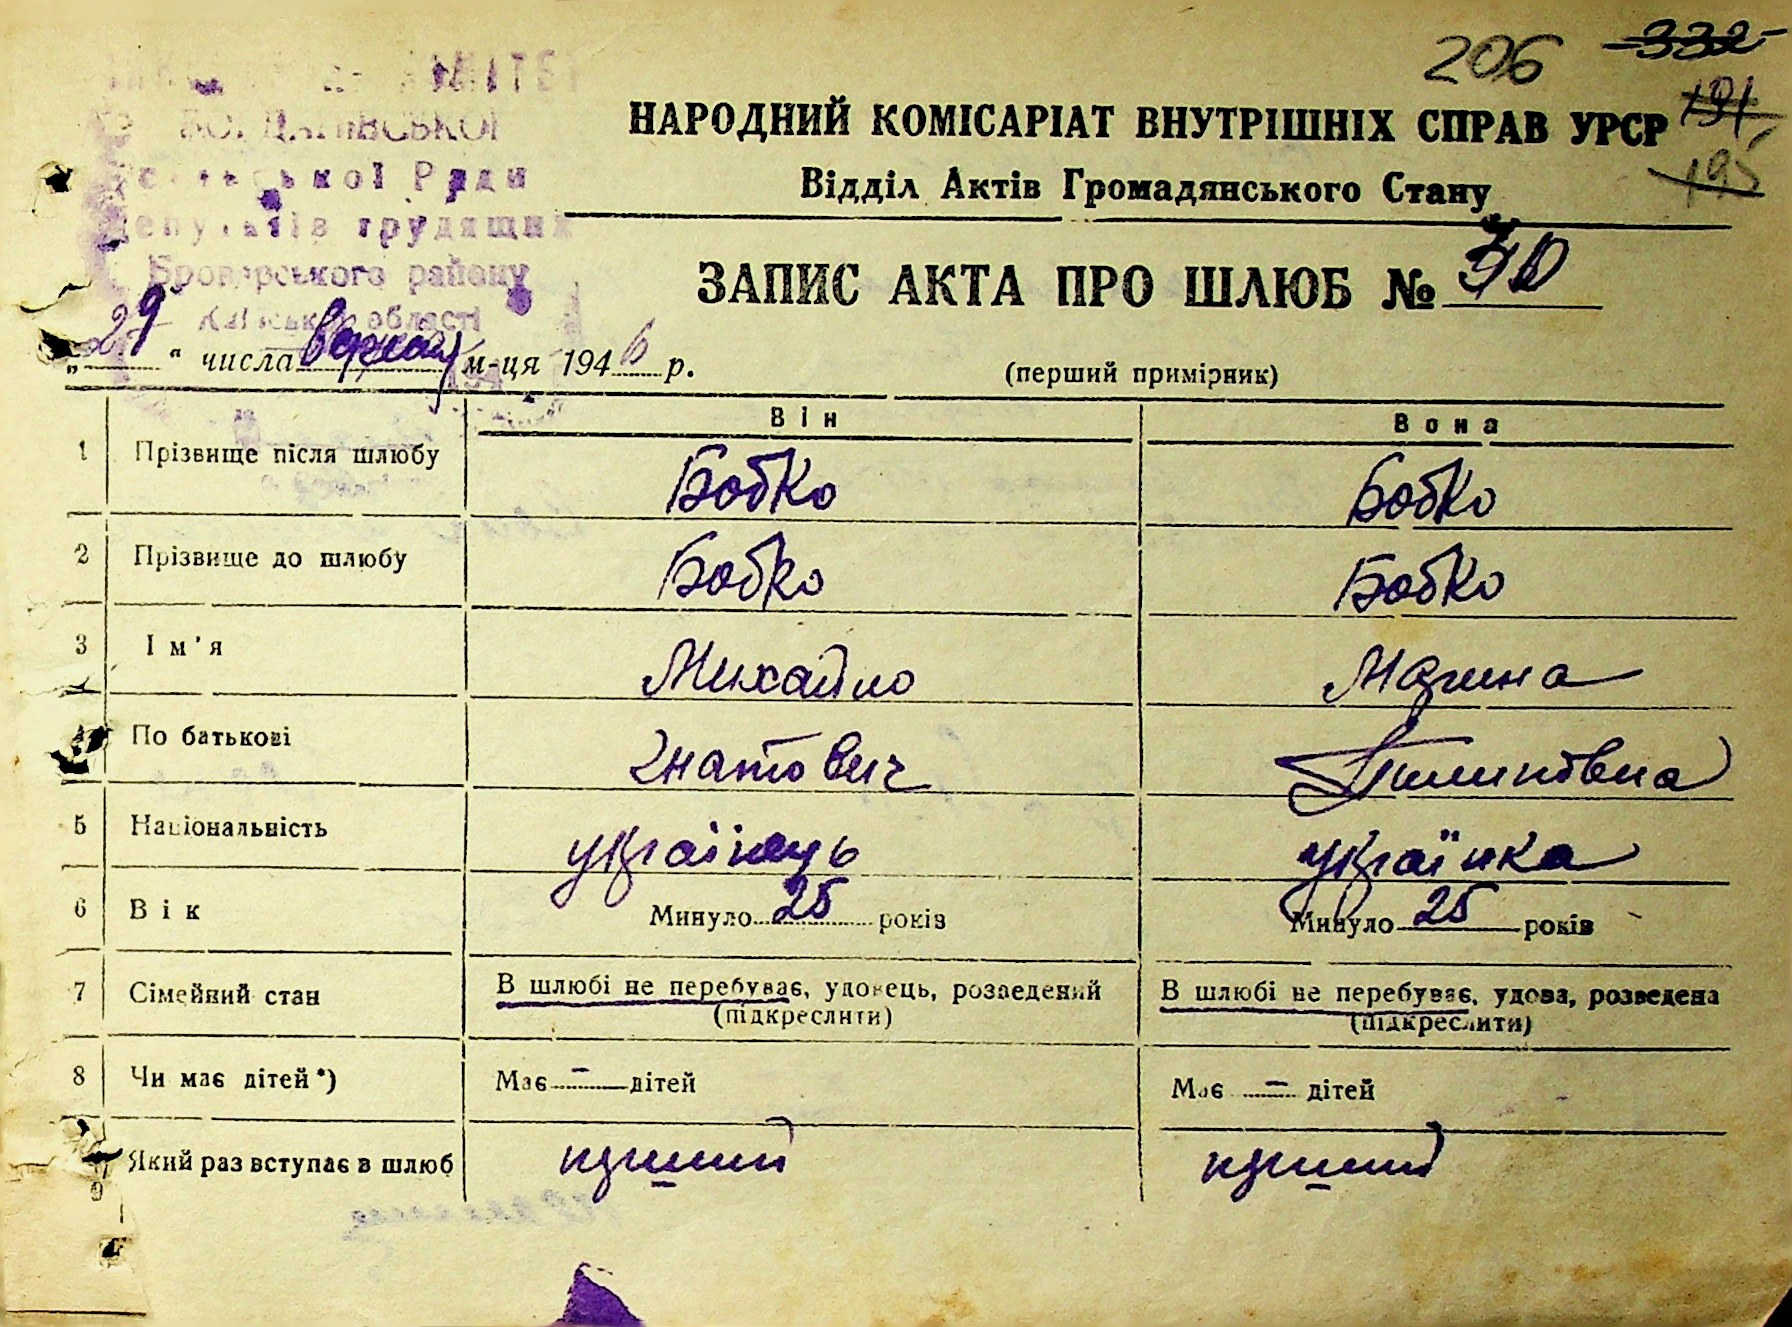 206 332
191
195
БОГДАНІВСЬКОЇ
сільської Ради
депутатів трудящих
Броварського району
Київської області
НАРОДНИЙ КОМІСАРІАТ ВНУТРІШНІХ СПРАВ УРСР
Відділ Актів Громадянського Стану
ЗАПИС АКТА ПРО ШЛЮБ №
„ 29 “ числа м-ця 1946 р.
(перший примірник)
Він Вона
1 Прізвище після шлюбу Бобко Бобко
2 Прізвище до шлюбу Бобко Бобко
3 Ім'я Михайло Марина
4 По батькові Гнатович Пилиповна
5 Національність українець українка
6 Вік Минуло 25 років Минуло 25 років
7 Сімейний стан В шлюбі не перебуває, удовець, розведений В шлюбі не перебуває, удова, розведена
(підкреслити) (підкреслити)
8 Чи має дітей*) Має — дітей Має — дітей
9 Який раз вступає в шлюб перший перший